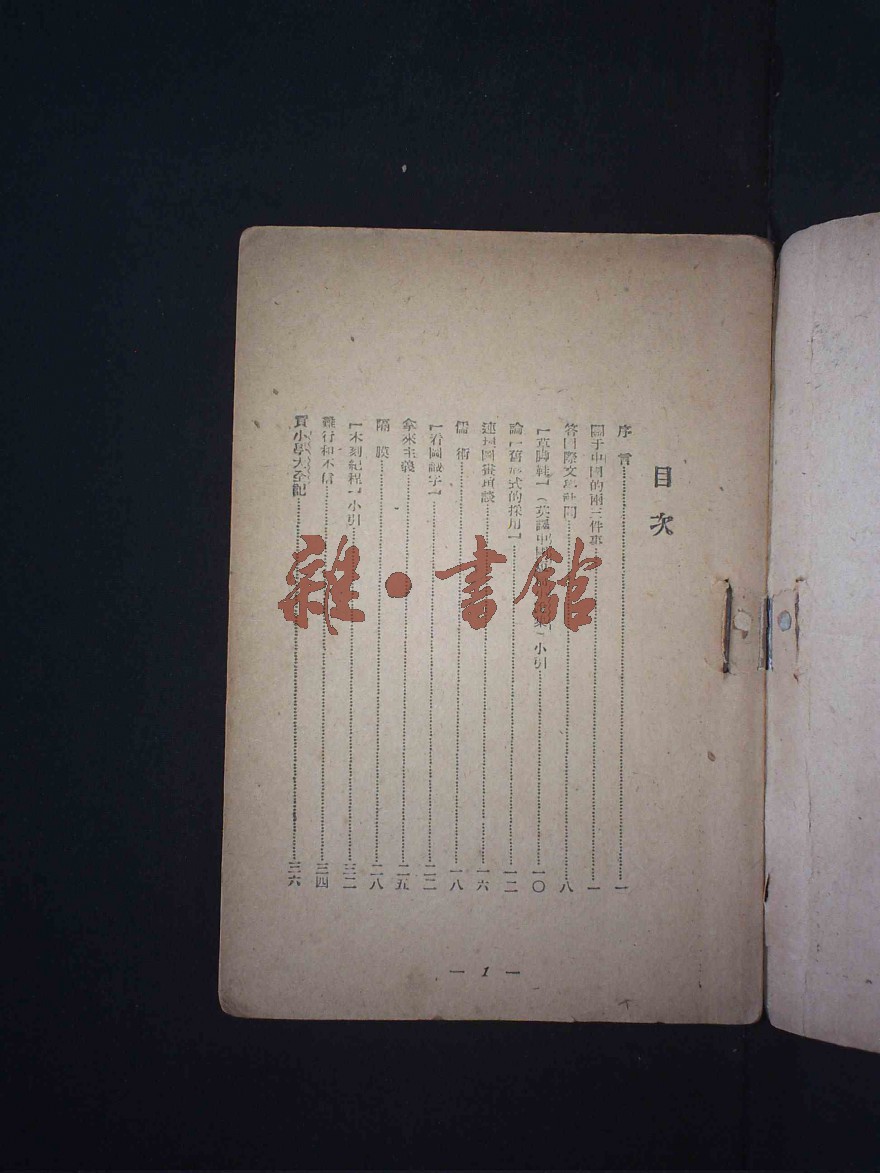 目次
序言一
關于中國的兩三件事一
答國際文學社問八
「草鞋脚」(英譯中國短篇小說集)小引一〇
論「舊形式的採用」一二
連環圖畫瑣談一六
儒術一八
「看圖識字」二二
拿來主義二五
隔膜二八
「木刻紀程」小引三二
難行和不信三四
買小學大全記三六
— 1 —
雜·書館